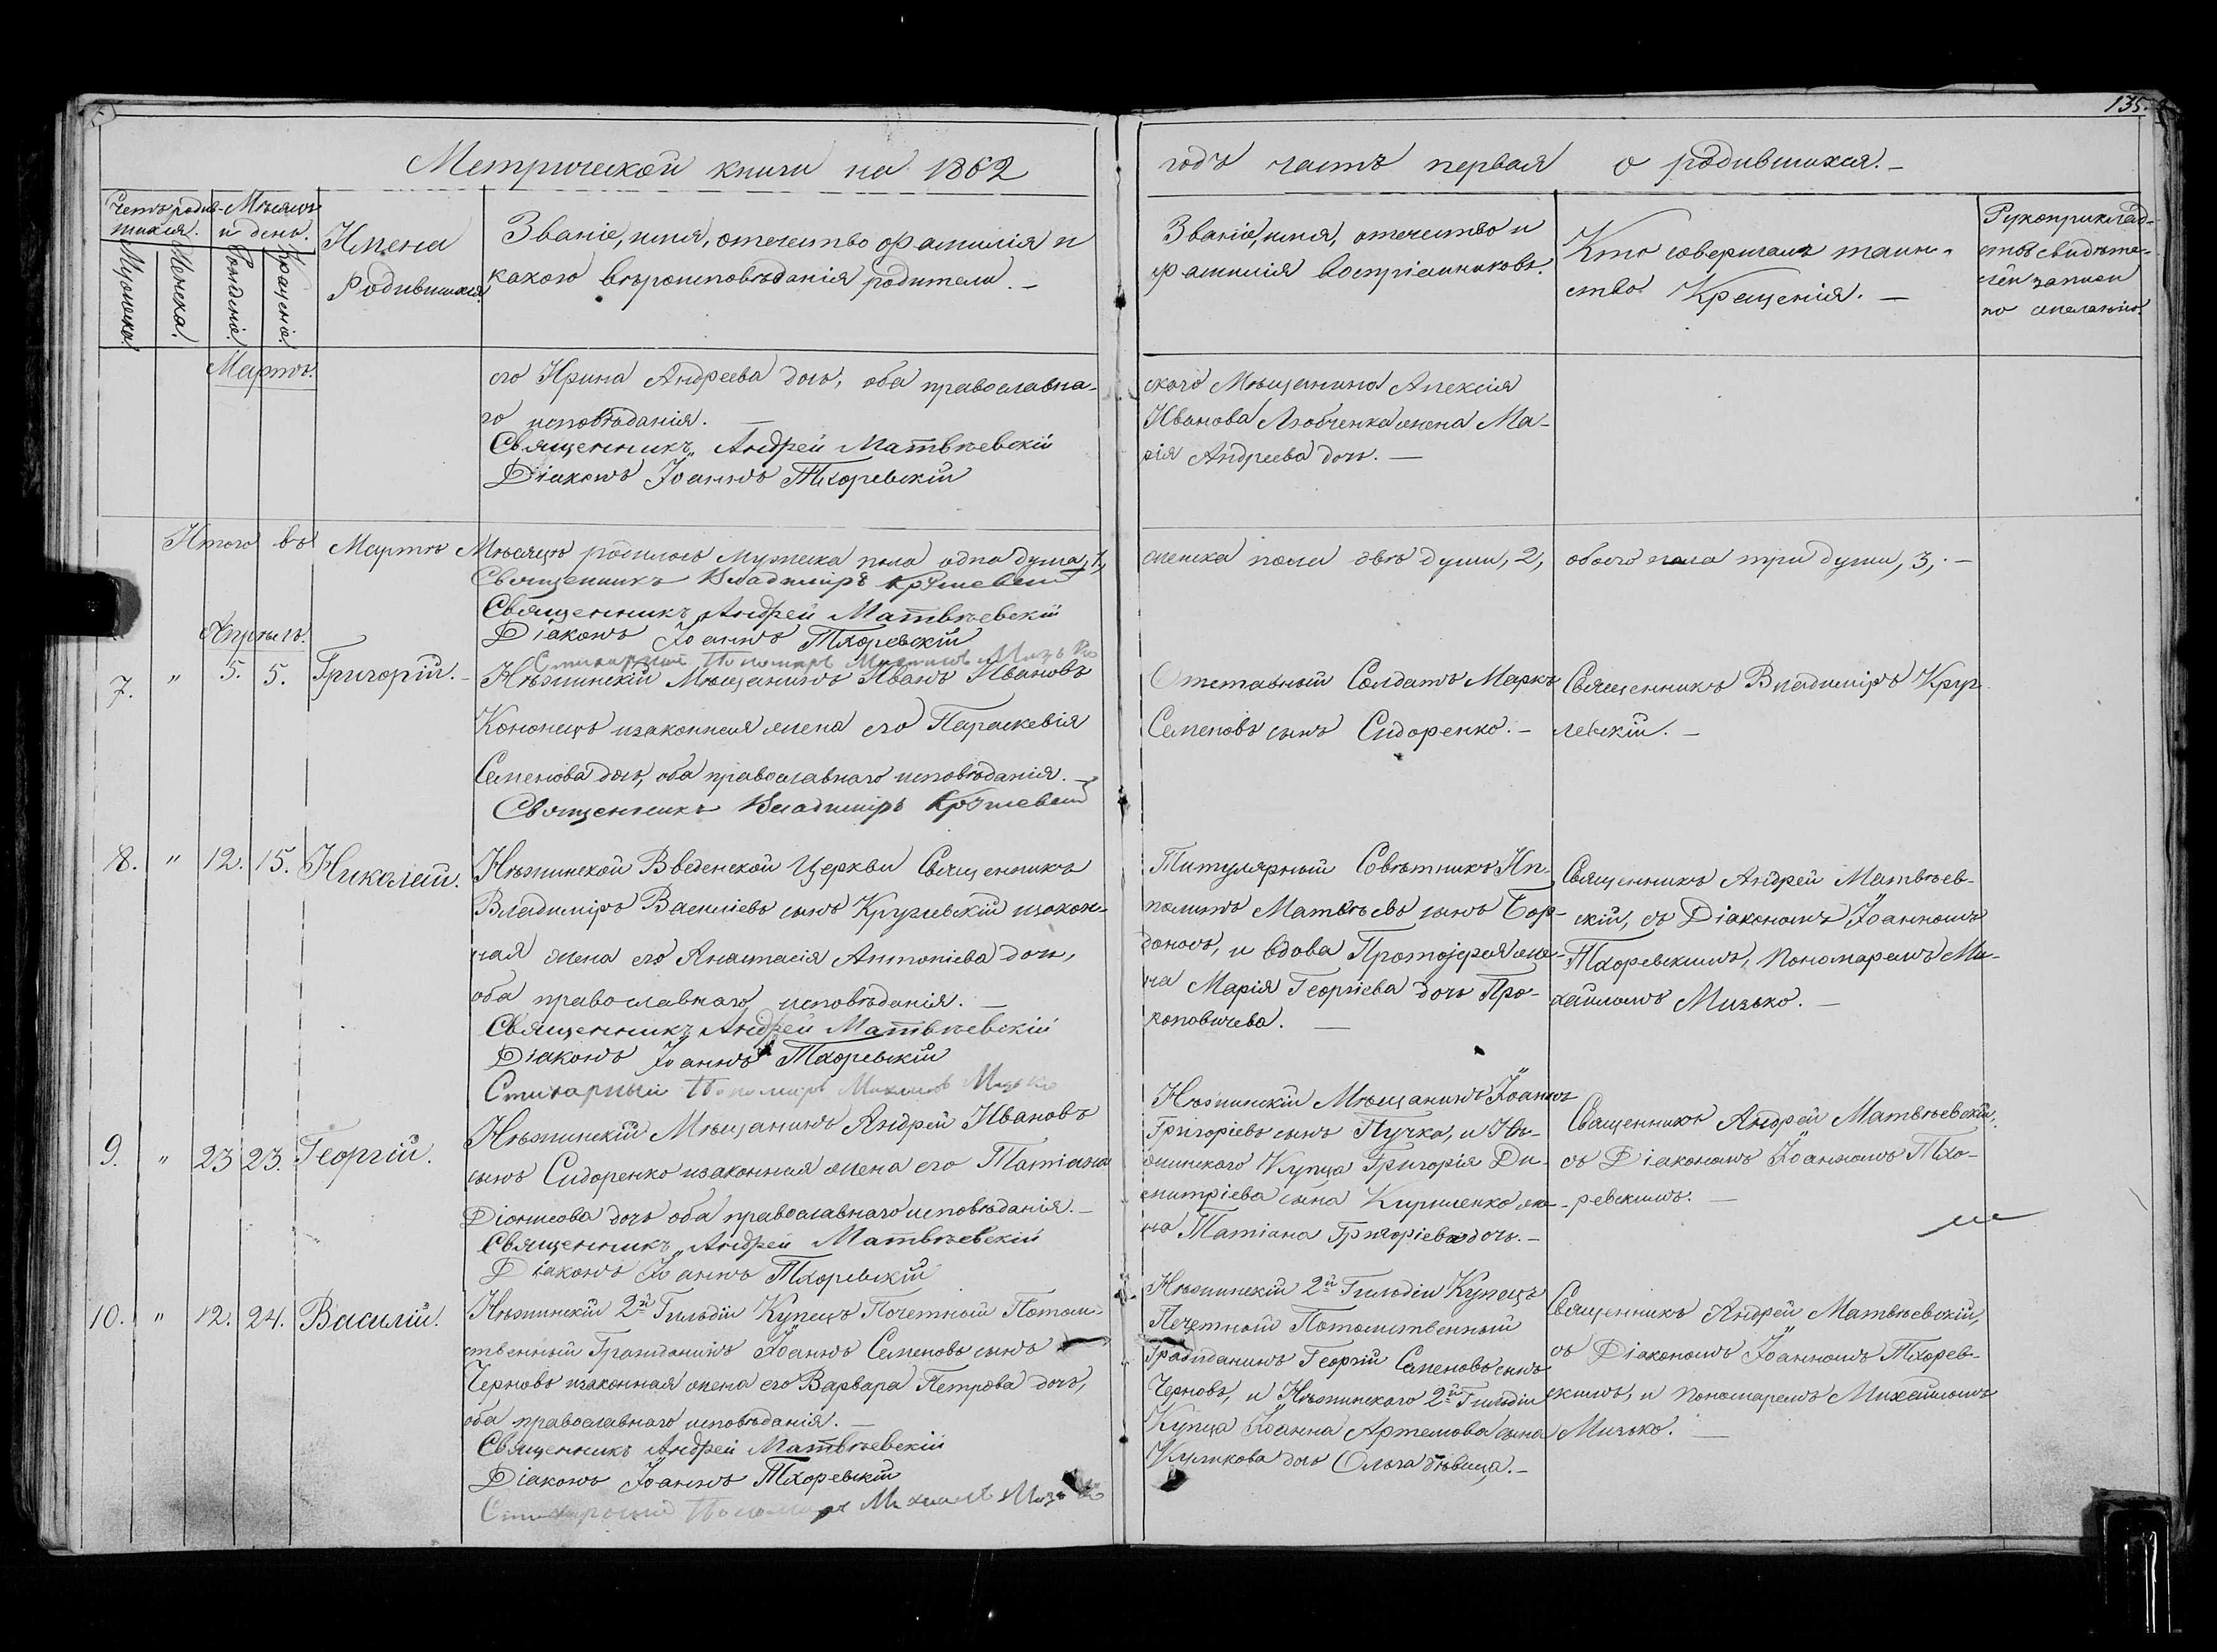 135.
Метрической книги на 1862
годъ часть первая о родившихся. —
Счетъ родив-
шихся.
Мужеска.
Женска.
Мѣсяцъ
и день.
Рожденія.
Крещенія.
Имена
Родившихся
Званіе, имя, отечество фамилія и
какого вѣроисповѣданія родители. —
Званіе, имя, отечество и
фамилія воспріемниковъ.
Кто совершалъ таин-
ство Крещенія. —
Рукоприклад-
ство свидѣте-
лей записи
по желанію.
Мартъ.
его Ирина Андреева дочь, оба православна-
го исповѣданія. —
Священникъ Андрей Матвѣевскій
Діаконъ Іоаннъ Тхоревскій
скаго Мѣщанина Алексія
Иванова Любченка жена Ма-
рія Андреева дочь. —
Итого въ Мартѣ Мѣсяцѣ родилось мужеска пола одна душа, 1,
женска пола двѣ души, 2, обоего пола три души, 3, . —
Священникъ Владиміръ Круглевскій
Священникъ Андрей Матвѣевскій
Діаконъ Іоаннъ Тхоревскій
Стихарный Пономарь Михаилъ Мизько
Апрѣль.
7. " 5. 5. Григорій. —
Нѣжинскій Мѣщанинъ Иванъ Ивановъ
Кононецъ изаконная жена его Параскевія
Семенова дочь, оба православнаго исповѣданія. —
Священникъ Владиміръ Круглевскій
Отставный Солдатъ Маркъ
Семеновъ сынъ Сидоренко. —
Священникъ Владиміръ Круг-
левскій. —
8. " 12. 15. Николай.
Нѣжинской Введенской Церкви Священникъ
Владиміръ Василіевъ сынъ Круглевскій изакон-
ная жена его Анастасія Антоніева дочь,
оба православнаго исповѣданія. —
Священникъ Андрей Матвѣевскій
Діаконъ Іоаннъ Тхоревскій
Стихарный Пономарь Михаилъ Мизько
Титулярный Совѣтникъ Ип-
политъ Матвѣевъ сынъ Бор-
доносъ, и вдова Протоіерея же-
на Марія Георгіева дочь Про-
коповичева. —
Священникъ Андрей Матвѣев-
скій, съ Діакономъ Іоанномъ
Тхоревскимъ, Пономаремъ Ми-
хаиломъ Мизько. —
9. " 23 23. Георгій.
Нѣжинскій Мѣщанинъ Андрей Ивановъ
сынъ Сидоренко изаконная жена его Татіана
Діонисова дочь оба православнаго исповѣданія. —
Священникъ Андрей Матвѣевскій
Діаконъ Іоаннъ Тхоревскій
Нѣжинскій Мѣщанинъ Іоаннъ
Григоріевъ сынъ Пучка, и Нѣ-
жинскаго Купца Григорія Ди-
митріева сына Кириленко же-
на Татіана Григоріева дочь. —
Священникъ Андрей Матвѣевскій,
съ Діакономъ Іоанномъ Тхо-
ревскимъ. —
10. " 12. 24. Василій.
Нѣжинскій 2й Гильдіи Купецъ Почетный Потом-
ственный Гражданинъ Іоаннъ Семеновъ сынъ
Черновъ изаконная жена его Варвара Петрова дочь,
оба православнаго исповѣданія. —
Священникъ Андрей Матвѣевскій
Діаконъ Іоаннъ Тхоревскій
Стихарный Пономарь Михаилъ Мизько
Нѣжинскій 2й Гильдіи Купецъ
Почетный Потомственный
Гражданинъ Георгій Семеновъ сынъ
Черновъ, и Нѣжинскаго 2й Гильдіи
Купца Іоанна Артемова сына
Куликова дочь Ольга дѣвица. —
Священникъ Андрей Матвѣевскій,
съ Діакономъ Іоанномъ Тхорев-
скимъ, и Пономаремъ Михаиломъ
Мизько. —